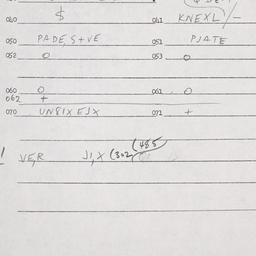 040 $ 041 KNEXL/-
050 PADE, S+VE 051 PJATE
052 0 053 0
060 0 061 0
062 +
070 UNSIXEJX 072 +
! VE,R J1,X (302 (485